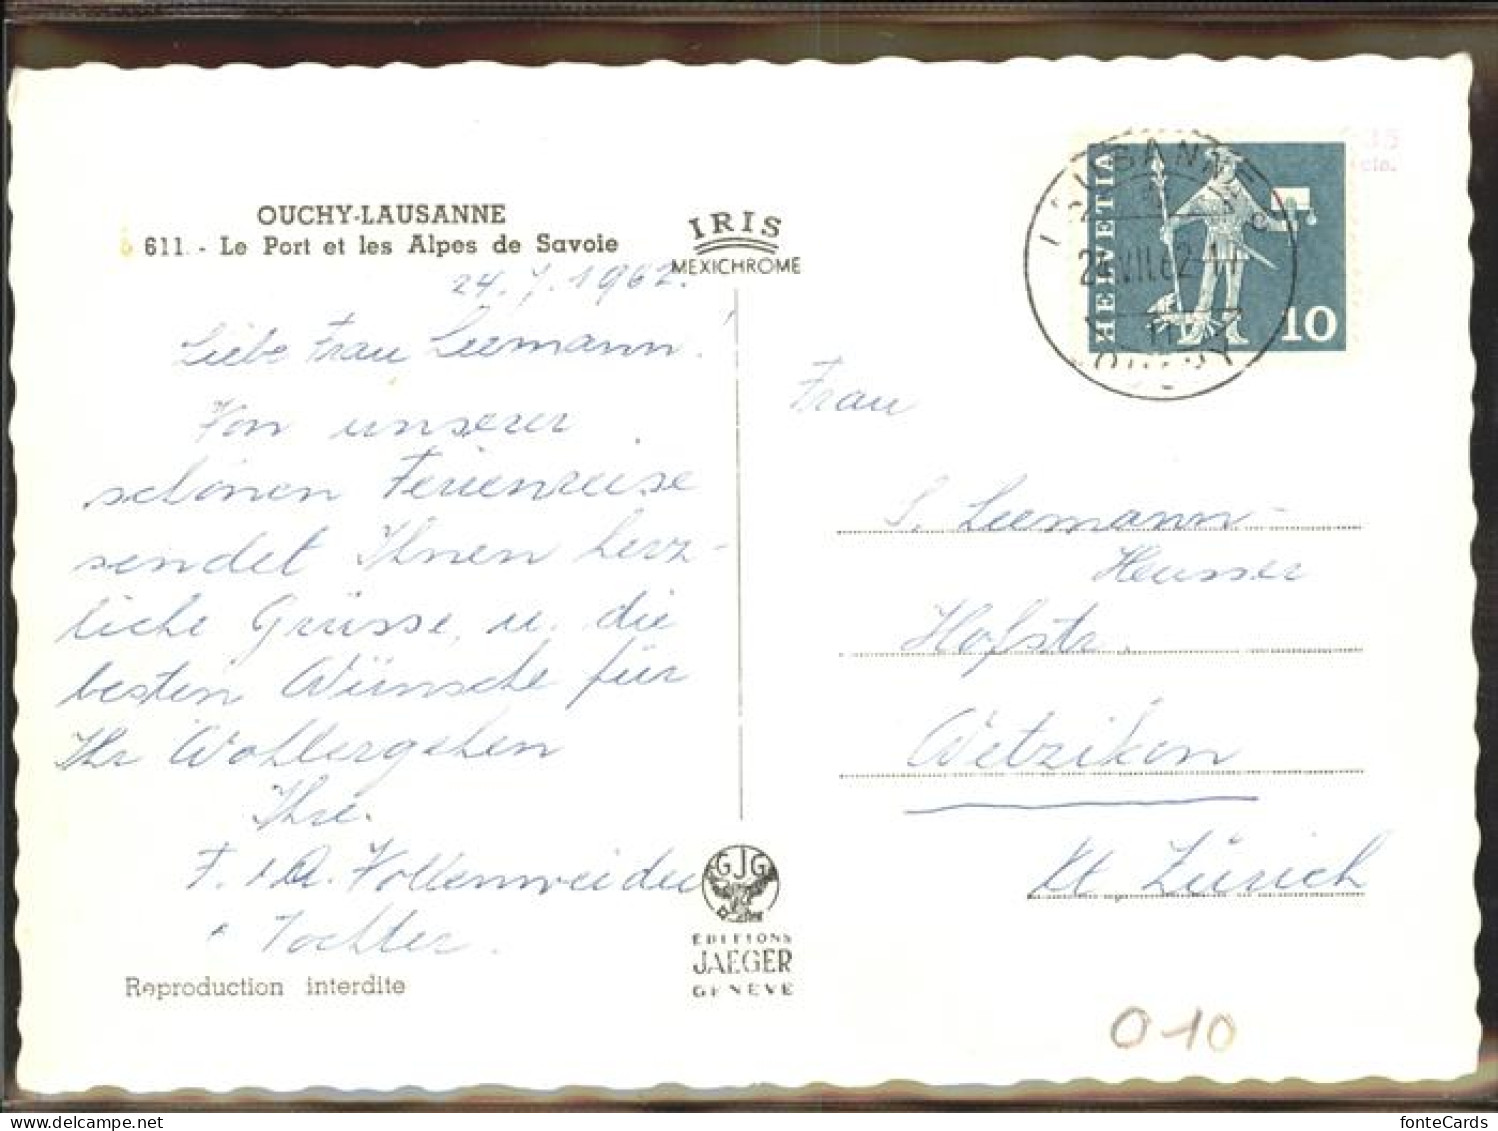 OUCHY-LAUSANNE
611. - Le Port et les Alpes de Savoie
IRIS
MEXICHROME
24. 7. 1962.
Liebe Frau Leemann!
Von unserer
schönen Ferienreise
sendet Ihnen herz-
liche Grüsse, u. die
besten Wünsche für
Ihr Wohlergehen
Ihre.
F. A. Vollenweider
Tochter.
Reproduction interdite
GJG
EDITIONS
JAEGER
GENEVE
HELVETIA
10
LAUSANNE
OUCHY
Frau
S. Leemann-
Heusser
Hofstr.
Wetzikon
Kt Zürich
010
fonteCards